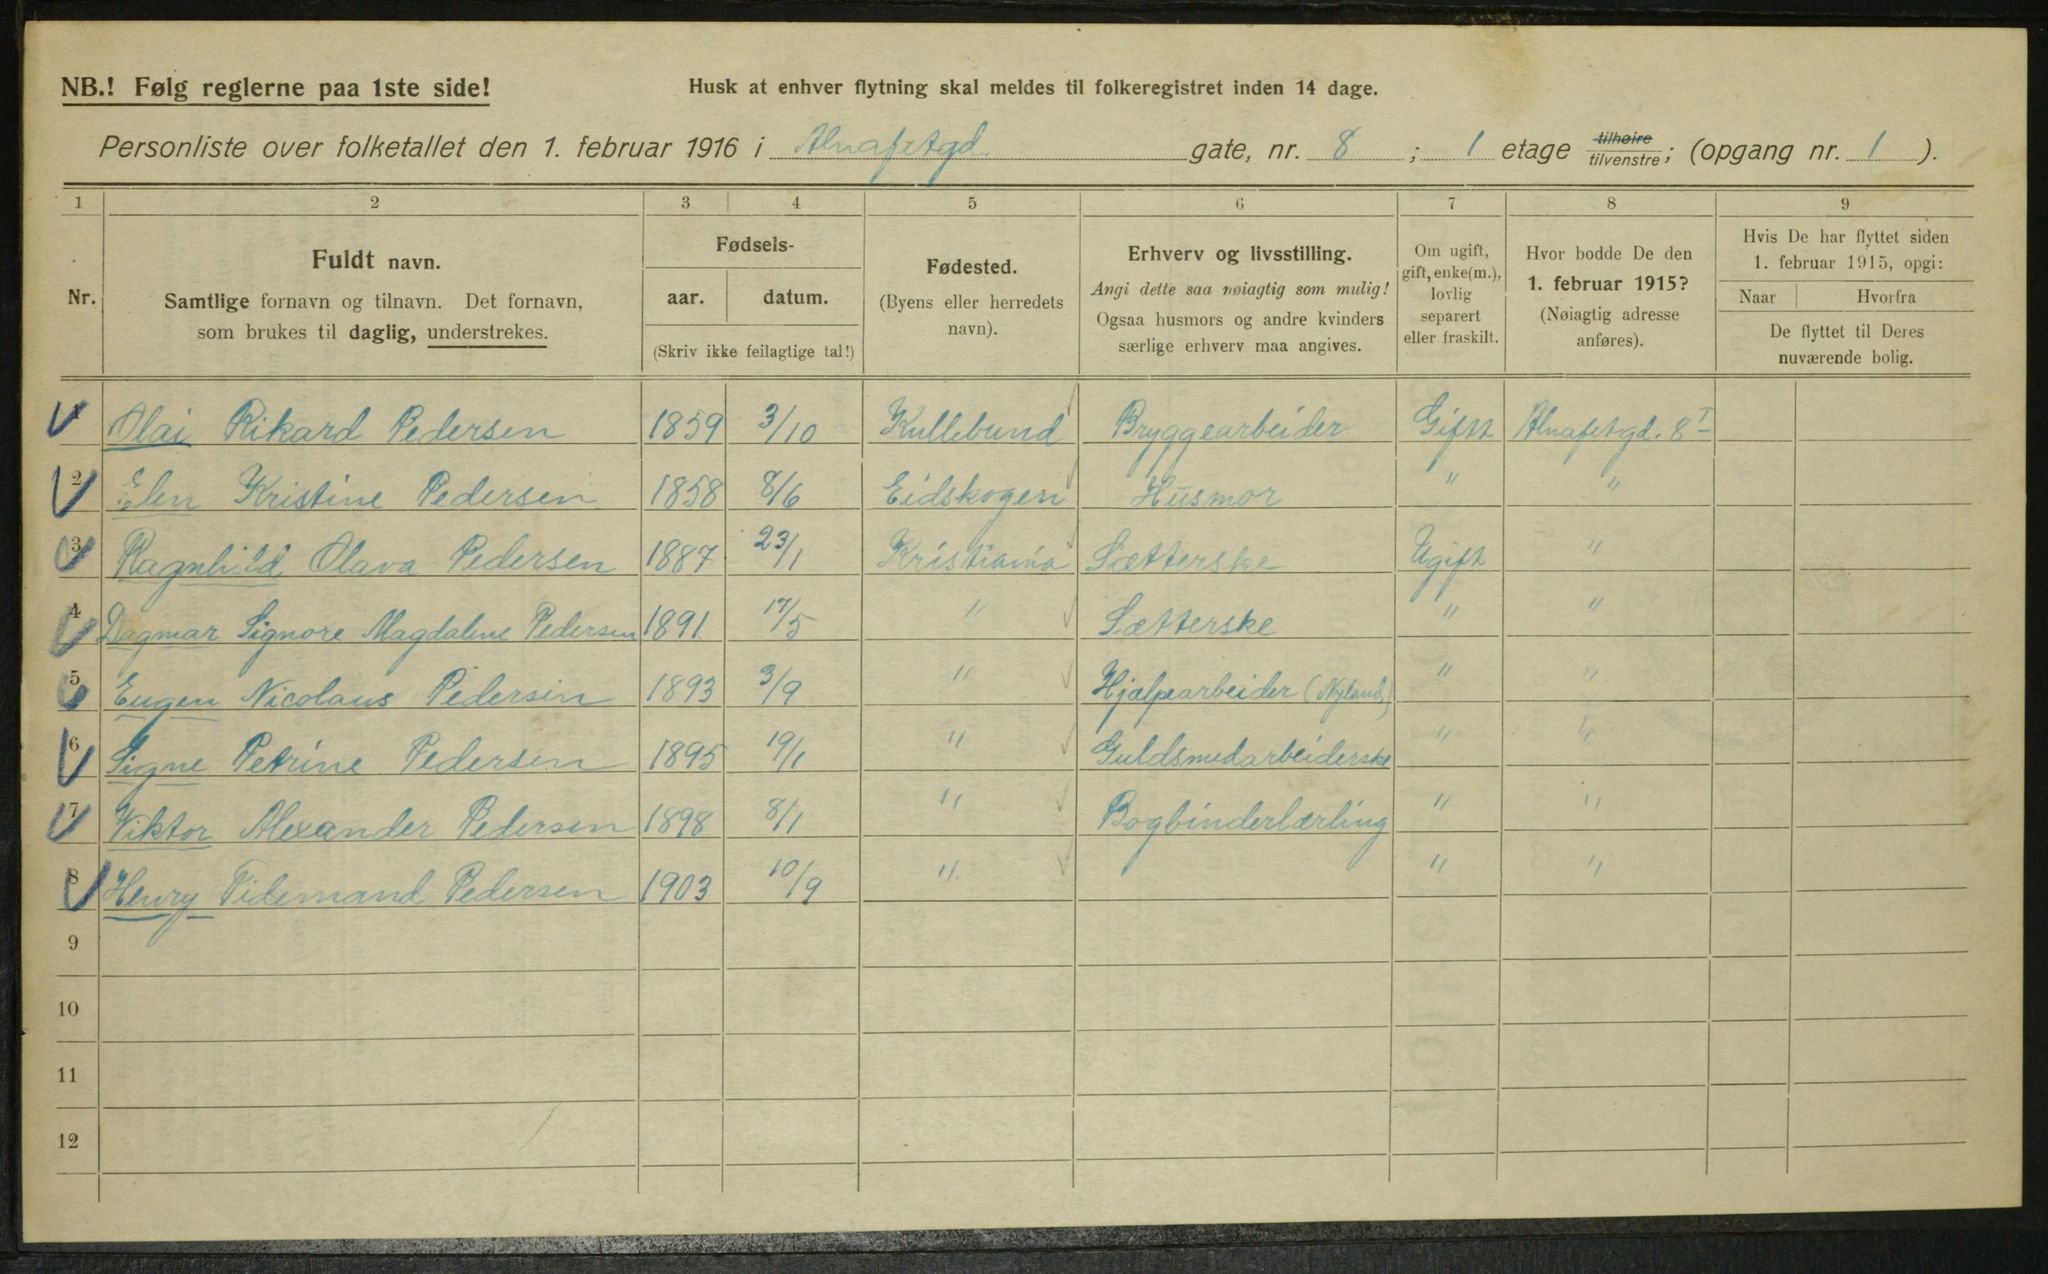 NB.! Følg reglerne paa 1ste side!
Husk at enhver flytning skal meldes til folkeregistret inden 14 dage.
Personliste over folketallet den 1. februar 1916 i Alnafetgd. gate, nr. 8 ; 1 etage tilhøire tilvenstre; (opgang nr. 1 ).
1 2 3 4 5 6 7 8 9
Nr.
Fuldt navn.
Samtlige fornavn og tilnavn. Det fornavn,
som brukes til daglig, understrekes.
Fødsels-
aar. datum.
(Skriv ikke feilagtige tal!)
Fødested.
(Byens eller herredets
navn).
Erhverv og livsstilling.
Angi dette saa nøiagtig som mulig!
Ogsaa husmors og andre kvinders
særlige erhverv maa angives.
Om ugift,
gift, enke(m.),
lovlig
separert
eller fraskilt.
Hvor bodde De den
1. februar 1915?
(Nøiagtig adresse
anføres).
Hvis De har flyttet siden
1. februar 1915, opgi:
Naar Hvorfra
De flyttet til Deres
nuværende bolig.
1 Olai Rikard Pedersen 1859 3/10 Kullebund Bryggearbeider Gift Alnafetgd. 8 I
2 Elen Kristine Pedersen 1858 8/6 Eidskogen Husmor " "
3 Ragnhild Olava Pedersen 1887 23/1 Kristiania Sætterske Ugift "
4 Dagmar Signore Magdalene Pedersen 1891 17/5 " Sætterske " "
5 Eugen Nicolaus Pedersen 1893 3/9 " Hjælpearbeider (Nyland.) " "
6 Signe Petrine Pedersen 1895 19/1 " Guldsmedarbeiderske " "
7 Viktor Alexander Pedersen 1898 8/1 " Bogbinderlærling " "
8 Henry Tidemand Pedersen 1903 10/9 " " "
9
10
11
12